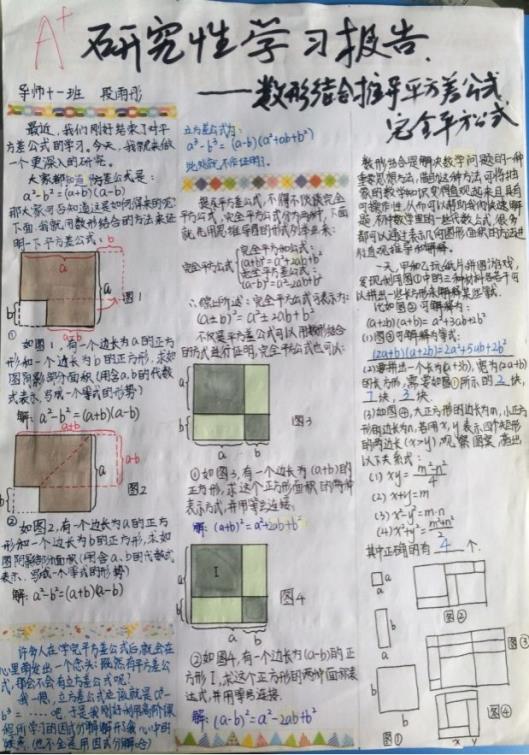 A+
研究性学习报告.
——数形结合推导平方差公式
完全平方公式
导师十一班 段雨彤
最近,我们刚好结束了对平
方差公式的学习。今天,我就来做
一个更深入的研究。
大家都知道平方差公式是:
a²-b²=(a+b)(a-b)
那大家可否知道这是如何得来的呢?
下面,当就用数形结合的方法来证
明一下平方差公式:
a
b
a
b
a-b
图1
①
如图1,有一个边长为a的正方
形和一个边长为b的正方形,求如
图阴影部分面积(用含a,b的代数
式表示,写成一个等式的形势)
解:a²-b²=(a+b)(a-b)
a+b
a
a-b
b
图2
② 如图2,有一个边长为a的正方
形和一个边长为b的正方形,求如
图阴影部分面积(用含a、b的代数式
表示,写成一个等式的形势)
解:a²-b²=(a+b)(a-b)
许多人在学完平方差公式后,就会在
心里萌发出一个念头:既然有平方差公
式,那会不会有立方差公式呢?
我一想,立方差公式应该就是a³-
b³=……吧,于是我刚好利用高阶课
程所学习的因式分解解开了我心中的
迷惑(也不会是用因式分解哈)
立方差公式为:
a³-b³=(a-b)(a²+ab+b²)
此处就不作证明了。
提及平方差公式,不得不说说完全
平方公式,完全平方公式分为两种,下面
就先用思维导图的形式列举出来:
完全平方公式
完全平方和公式:
(a+b)²=a²+2ab+b²
完全平方差公式:
(a-b)²=a²-2ab+b²
∴综上所述:完全平方公式可表示为:
(a±b)²=a²±2ab+b²
不仅是平方差公式可以用数形结合
的方式进行证明,完全平方公式也可以:
a
b
a
b
图3
①如图3,有一个边长为(a+b)的
正方形,求这个正方形面积的两种
表示方式,并用等号连接.
解:(a+b)²=a²+2ab+b²
I
a
b
a
b
图4
②如图4,有一个边长为(a-b)的正
方形I,求这个正方形的两种面积表
达式,并用等号连接.
解:(a-b)²=a²-2ab+b²
数形结合是解决数学问题的一种
重要思想方法,借助这种方法可将抽
象的数学知识变得直观起来且具有
可操作性,从而可以帮助我们快速解
题.初中数学里的一些代数公式,很多
都可以通过表示几何图形面积的方法进
行直观推导和解释.
一天,甲和乙玩纸片拼图游戏,
发现利用图①中的三种材料各若干可
以拼出一些长方形来解释某些等式.
比如图②可解释为:
(a+2b)(a+b)=a²+3ab+2b²
(1)图③可解释为等式:
(2a+b)(a+2b)=2a²+5ab+2b²
(2)要拼出一个长为(a+3b),宽为(2a+b)
的长方形,需要如图①所示的 2 块,
7 块,3 块.
(3)如图④,大正方形的边长为m,小正方
形的边长为n,若用x,y表示四个矩形
的两边长(x>y),观察图案,指出
以下关系式:
(1) xy=m²-n²/4
(2) x+y=m
(3) x²-y²=m·n
(4) x²+y²=m²+n²/2
其中正确的有 4 个.
a
a
b
a
b
b
图①
图②
图③
图④
x y